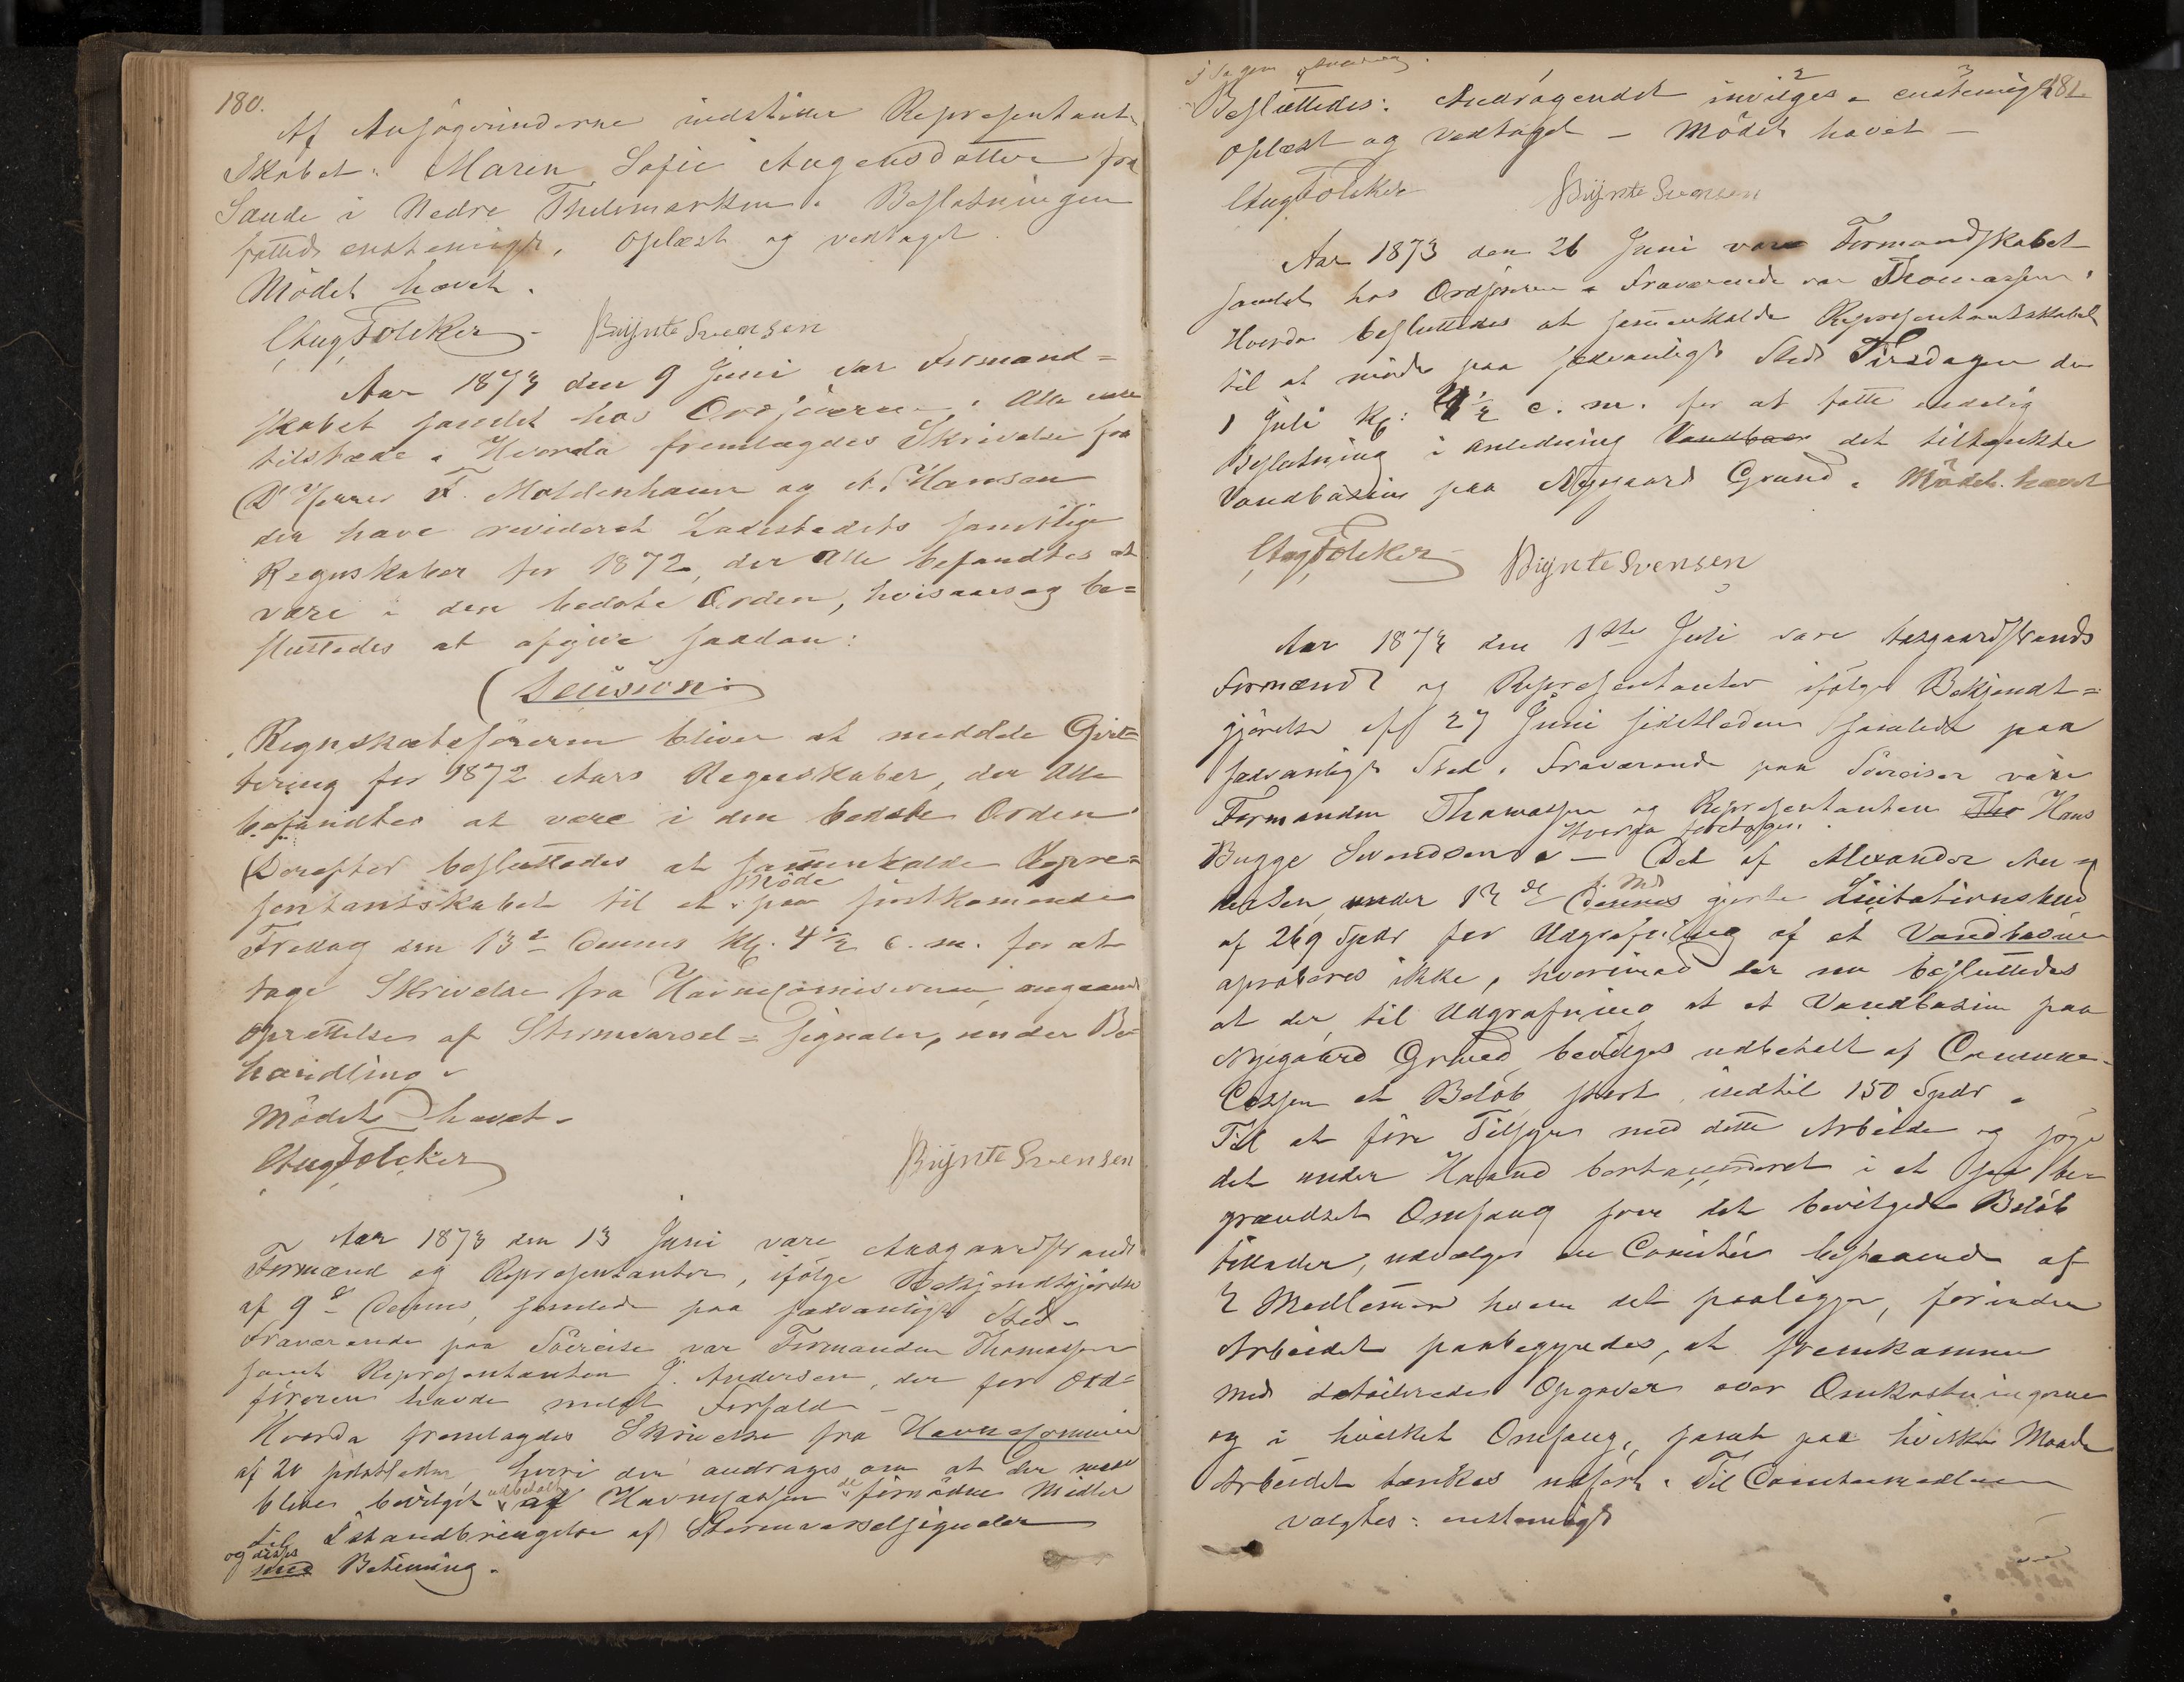 180.
Af Ansøgerinderne indstiller Repræsentant-
skabet: Maren Sofie Aagensdatter fra
Saude i Nedre Thelemarken. Beslutningen
fattedes enstemigt. Oplæst og vedtaget.
Mödet hævet.
Aug Fölcker Brynte Svensen
Aar 1873 den 9 Juni var Formand=
skabet samlet hos Ordföreren. Alle vare
tilstæde. Hvorda fremlagdes Skrivelse fra
D'Herrer F. Moldenhauer og A. Hansen
der have revideret Ladestedets samtlige
Regnskaber for 1872, der Alle befandtes at
være i den bedste Orden, hvisaarsag be=
sluttedes at afgive saadan:
Desision:
Regnskabsföreren bliver at meddele Qvit=
tering for 1872 Aars Regnskaber, der Alle
befandtes at være i den bedste Orden.
Derefter besluttedes at sammenkalde Repræ=
sentantskabet til et Möde paa förstkomende
Fredag den 13de Dennes Kl. 4½ e. m. for at
tage Skrivelse fra Havnecomisionen, angaaende
Oprettelse af Stormvarsel=Signaler, under Be=
handling.
Mödet hævet.
Aug Fölcker Brynte Svensen
Aar 1873 den 13 Juni vare Aasgaardstrands
Formænd og Repræsentanter, ifölge Bekjendtgjörelse
af 9de Dennes, samlede paa sædvanligt Sted.
Fraværende paa Söreise var Formanden Thomassen
samt Repræsentanten J. Andersen, der for Ord=
föreren havde meldt Forfald –
Hvorda fremlagdes Skrivelse fra Havnecommision
af 20 sidstleden, hvori der andrages om at der maa
blive bevilget udbetalt af Havnecassen de fornödne Midler
til Istandbringelse af Stormvarselsignaler
og disses Betjening.
i Sagen
Besluttedes: Andragendet invilges enstemigt 181.
Oplæst og vedtaget – Mödet hævet –
Aug Fölcker Brynte Svensen
Aar 1873 den 26 Juni var Formandskabet
samlet hos Ordföreren. Fraværende var Thomassen.
Hvorda besluttedes at sammenkalde Repræsentantskabet
til at möde paa sædvanligt Sted Tirsdagen den
1 Juli Kl: 4½ e. m. for at fatte endelig
Beslutning i Anledning Vandbas det tiltænkte
Vandbasin paa Nygaard Grund. Mödet hævet
Aug Fölcker Brynte Svensen
Aar 1873 den 1ste Juli vare Aasgaardstrands
Formænd og Repræsentanter ifölge Bekjendt=
gjörelse af 27 Juni sidstleden samlede paa
sædvanligt Sted. Fraværende paa Söreiser vare
Formanden Thomassen og Repræsentanten Hans
Bugge Svendsen. – Hvorda foretoges: Det af Alexander An=
dersen under 13de Dennes f. Md gjorte Licitationsbud
af 269 Spdr for Udgrafning af et Vandbasin
aproberes ikke, hvorimod der nu besluttedes
at der til Udgrafning af et Vandbasin paa
Nygaard Grund bevilges udbetalt af Commune=
Cassen et Belöb stort indtil 150 Spdr.
Til at före Tilsyn med dette Arbeide og söge
det under Haand bortaccorderet i et saa be
grændset Omfang som det bevilgede Belöb
tillader, udvælges en Comitée bestaaende af
3 Medlemmer hvem det paaligger, forinden
Arbeidet paabegyndes, at fremkomme
med detaillerede Opgaver over Omkostningerne
og i hvilket Omfang, samt paa hvilken Maade
Arbeidet tænkes udfört. Til Comitemedlemer
valgtes: enstemigt